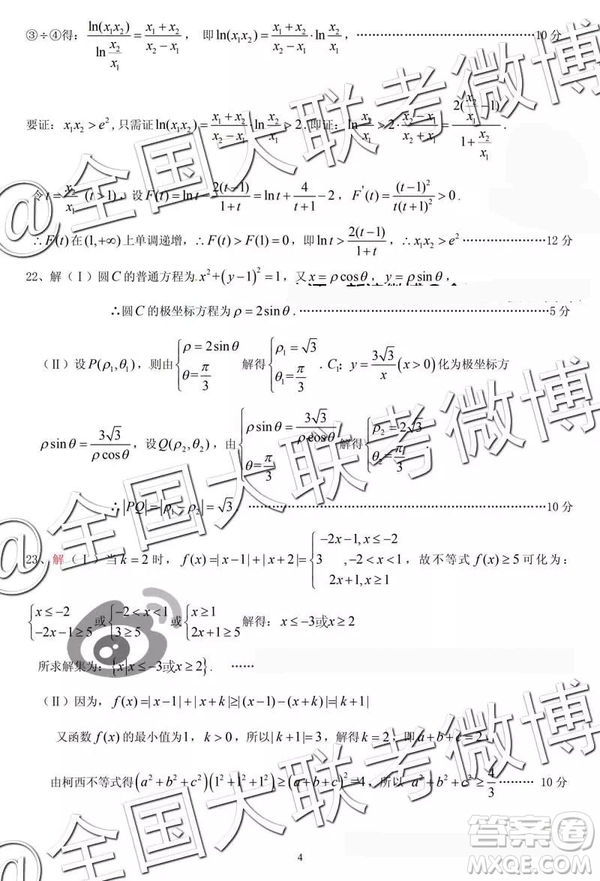 ③÷④得: ln(x₁x₂)/ln(x₂/x₁) = (x₁+x₂)/(x₂-x₁), 即ln(x₁x₂)= (x₁+x₂)/(x₂-x₁)·ln(x₂/x₁). ……10分
要证: x₁x₂>e², 只需证ln(x₁x₂)= (x₁+x₂)/(x₂-x₁) ln(x₂/x₁)>2. 即证: ln(x₂/x₁)>2· = 2(x₂/x₁-1)/(1+x₂/x₁).
令t=x₂/x₁ (t>1), 设F(t)=ln t-2(t-1)/(1+t)=ln t+4/(t+1)-2, F'(t)=(t-1)²/t(t+1)²>0.
∴F(t)在(1,+∞)上单调递增, ∴F(t)>F(1)=0, 即ln t>2(t-1)/(1+t). ∴x₁x₂>e² ……12分
22、解(Ⅰ)圆C的普通方程为x²+(y-1)²=1, 又x=ρcosθ, y=ρsinθ,
∴圆C的极坐标方程为ρ=2sinθ. ……5分
(Ⅱ)设P(ρ₁,θ₁), 则由{ρ=2sinθ θ=π/3 解得{ρ₁=√3 θ₁=π/3. C₁: y=3√3/x (x>0)化为极坐标方
ρsinθ=3√3/ρcosθ, 设Q(ρ₂,θ₂), 由{ρsinθ=3√3/ρcosθ θ=π/3 解得{ρ₂=2√3 θ₂=π/3
∴|PQ|=|ρ₁-ρ₂|=√3 ……10分
23、解(Ⅰ)当k=2时, f(x)=|x-1|+|x+2|={-2x-1,x≤-2 3,-2<x<1 2x+1,x≥1, 故不等式f(x)≥5可化为:
{x≤-2 -2x-1≥5 或{-2<x<1 3≥5 或{x≥1 2x+1≥5 解得: x≤-3或x≥2
所求解集为:{x|x≤-3或x≥2}. ……
(Ⅱ)因为, f(x)=|x-1|+|x+k|≥|(x-1)-(x+k)|=|k+1|
又函数f(x)的最小值为, k>0, 所以
由柯西不等式得(a²+b²+c²)(1²+1²+1²)≥(a+b+c)²=4, 所以 a²+b²+c²≥4/3 ……10分
4
@全国大联考微博
@全国大联考微博
@全国大联考微博
答案圈
MXQE.COM